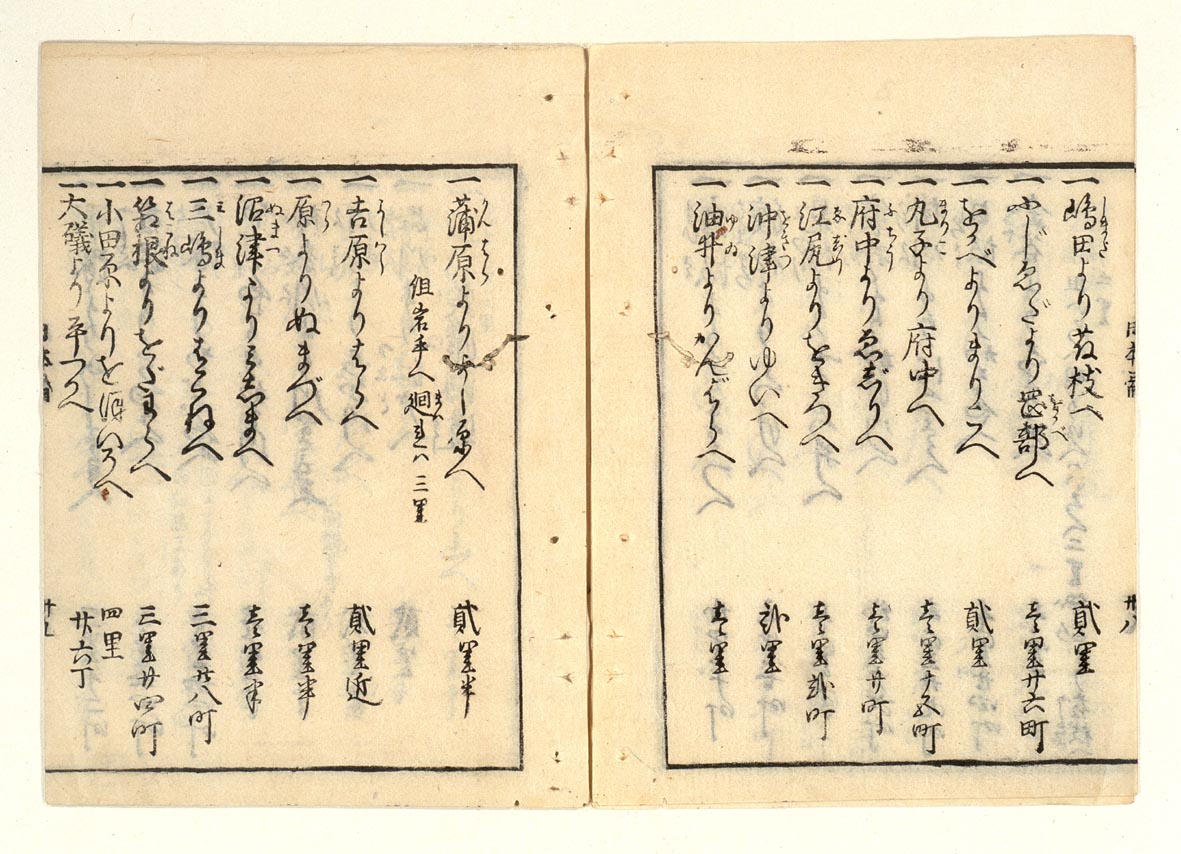 一 嶋田より藤枝へ 貳里
一 ふぢゑだより岡部へ 壱里廿六町
一 をかべよりまりこへ 貳里
一 丸子より府中へ 壱里十五町
一 府中よりゑじりへ 壱里廿町
一 江尻よりをきつへ 壱里弐町
一 沖津よりゆいへ 弐里
一 油井よりかんばらへ 壱里
廿八
一 蒲原よりよし原へ 貳里半
但岩手へ廻れハ三里
一 吉原よりはらへ 貳里近
一 原よりぬまづへ 壱里半
一 沼津よりみしまへ 壱里半
一 三嶋よりはこねへ 三里廿八町
一 箱根よりをだわらへ 三里廿四町
一 小田原より大磯へ 四里
一 大礒より平つかへ 廿六丁